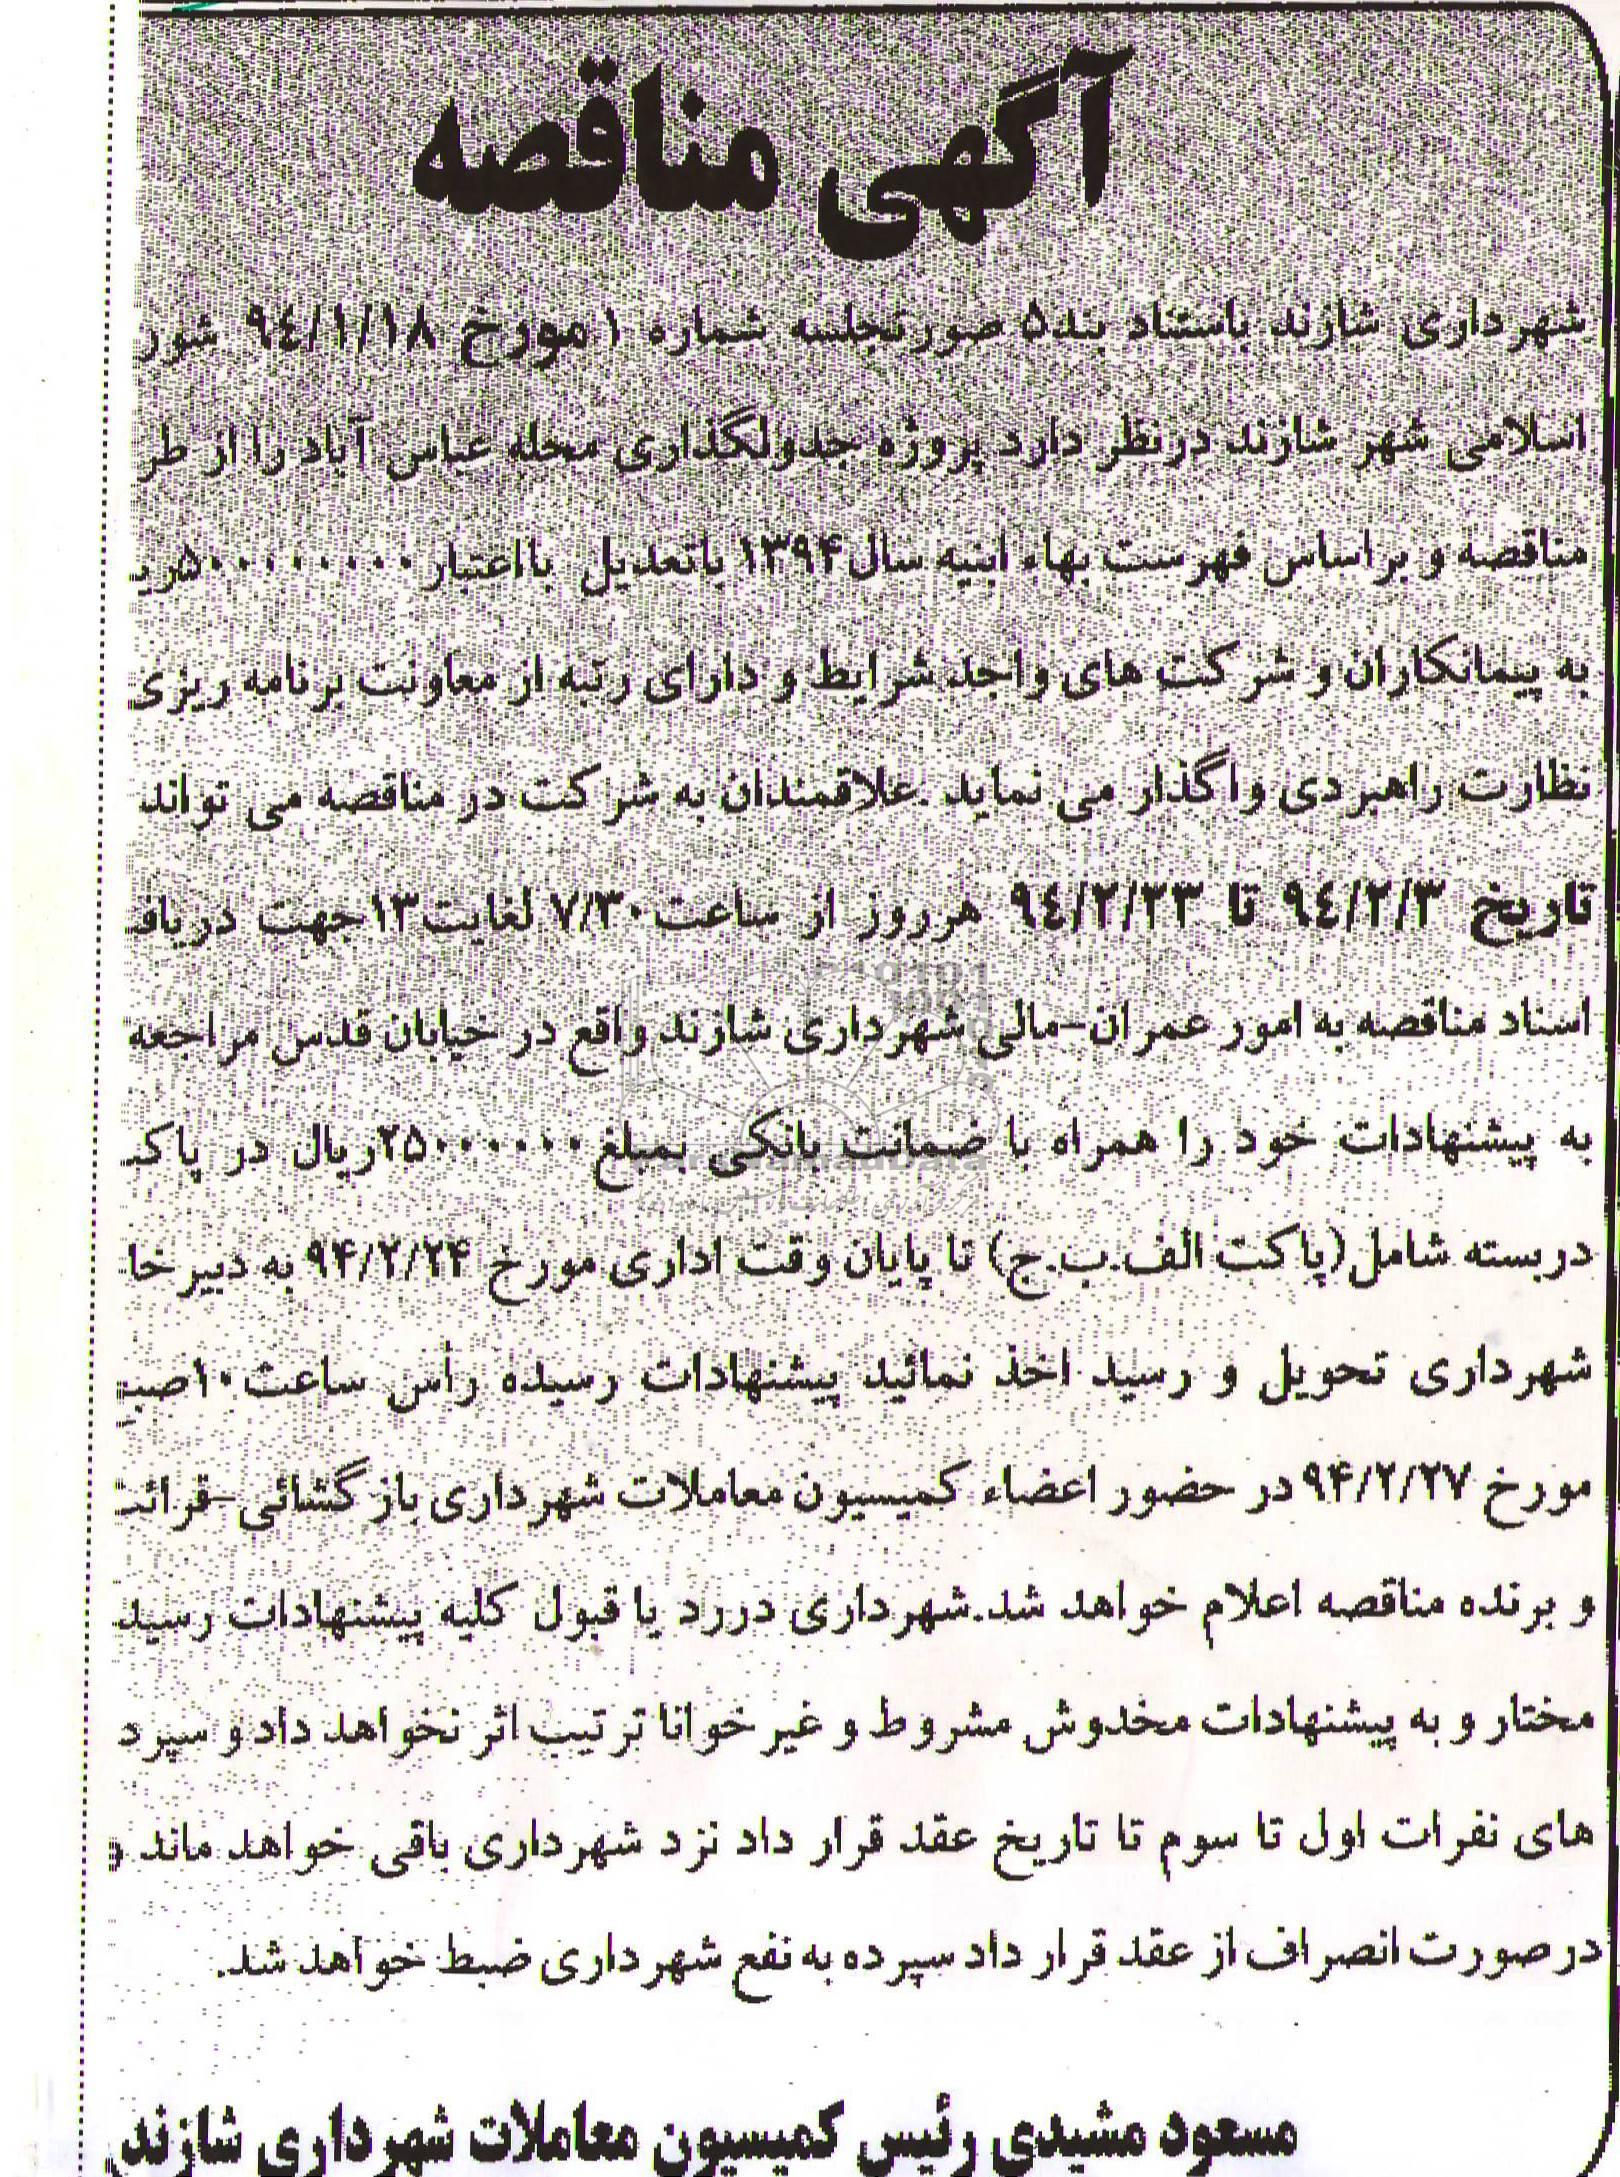 آگهی مناقصه
شهرداری شازند باستناد بند۵ صورتجلسه شماره ۱ مورخ ۹٤/۱/۱۸ شور
اسلامی شهر شازند درنظر دارد پروژه جدولگذاری محله عباس آباد را از طر
مناقصه و براساس فهرست بهاء ابنیه سال۱۳۹۴ باتعدیل بااعتبار ۵۰۰۰۰۰۰۰۰۰ری
به پیمانکاران و شرکت های واجد شرایط و دارای رتبه از معاونت برنامه ریزی
نظارت راهبردی واگذار می نماید .علاقمندان به شرکت در مناقصه می تواند
تاریخ ۹٤/۲/۳ تا ۹٤/۲/۲۳ هرروز از ساعت۷/۳۰ لغایت۱۳جهت دریاف
اسناد مناقصه به امور عمران-مالی شهرداری شازند واقع در خیابان قدس مراجعه
به پیشنهادات خود را همراه با ضمانت بانکی بمبلغ ۲۵۰۰۰۰۰۰۰ریال در پاک
دربسته شامل(پاکت الف.ب.ج) تا پایان وقت اداری مورخ ۹۴/۲/۲۴ به دبیرخا
شهرداری تحویل و رسید اخذ نمائید پیشنهادات رسیده رأس ساعت۱۰صبح
مورخ ۹۴/۲/۲۷در حضور اعضاء کمیسیون معاملات شهرداری بازگشائی-قرائت
و برنده مناقصه اعلام خواهد شد.شهرداری دررد یا قبول کلیه پیشنهادات رسید
مختار و به پیشنهادات مخدوش مشروط و غیر خوانا ترتیب اثر نخواهد داد و سپرد
های نفرات اول تا سوم تا تاریخ عقد قرار داد نزد شهرداری باقی خواهد ماند و
درصورت انصراف از عقد قرار داد سپرده به نفع شهرداری ضبط خواهد شد.
مسعود مشیدی رئیس کمیسیون معاملات شهرداری شازند